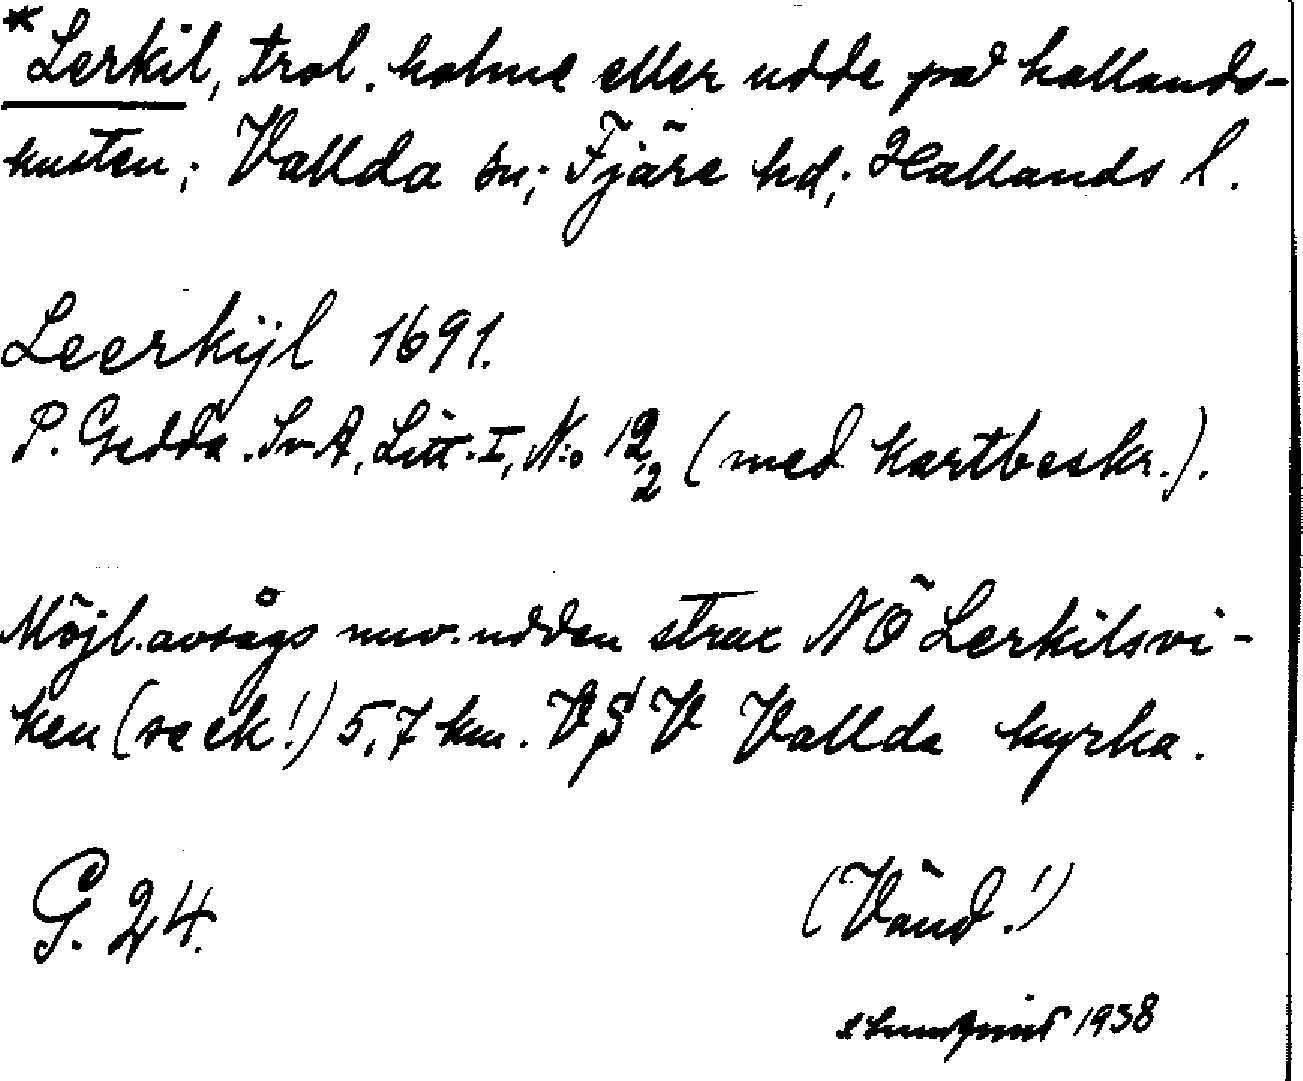 *Lerkil, trol. holme eller udde på hallands-
kusten; Vallda sn; Fjäre hd; Hallands l.
Leerkijl 1691.
P. Gedda. Sv A, Litt. I, N:o 12 2 (med kartbeskr.).
Möjl. avsågs nuv. udden strax NÖ Lerkilsvi-
ken (se ek!) 5,7 km. V V Vallda kyrka.
G. 24.
(Vänd!)
1938